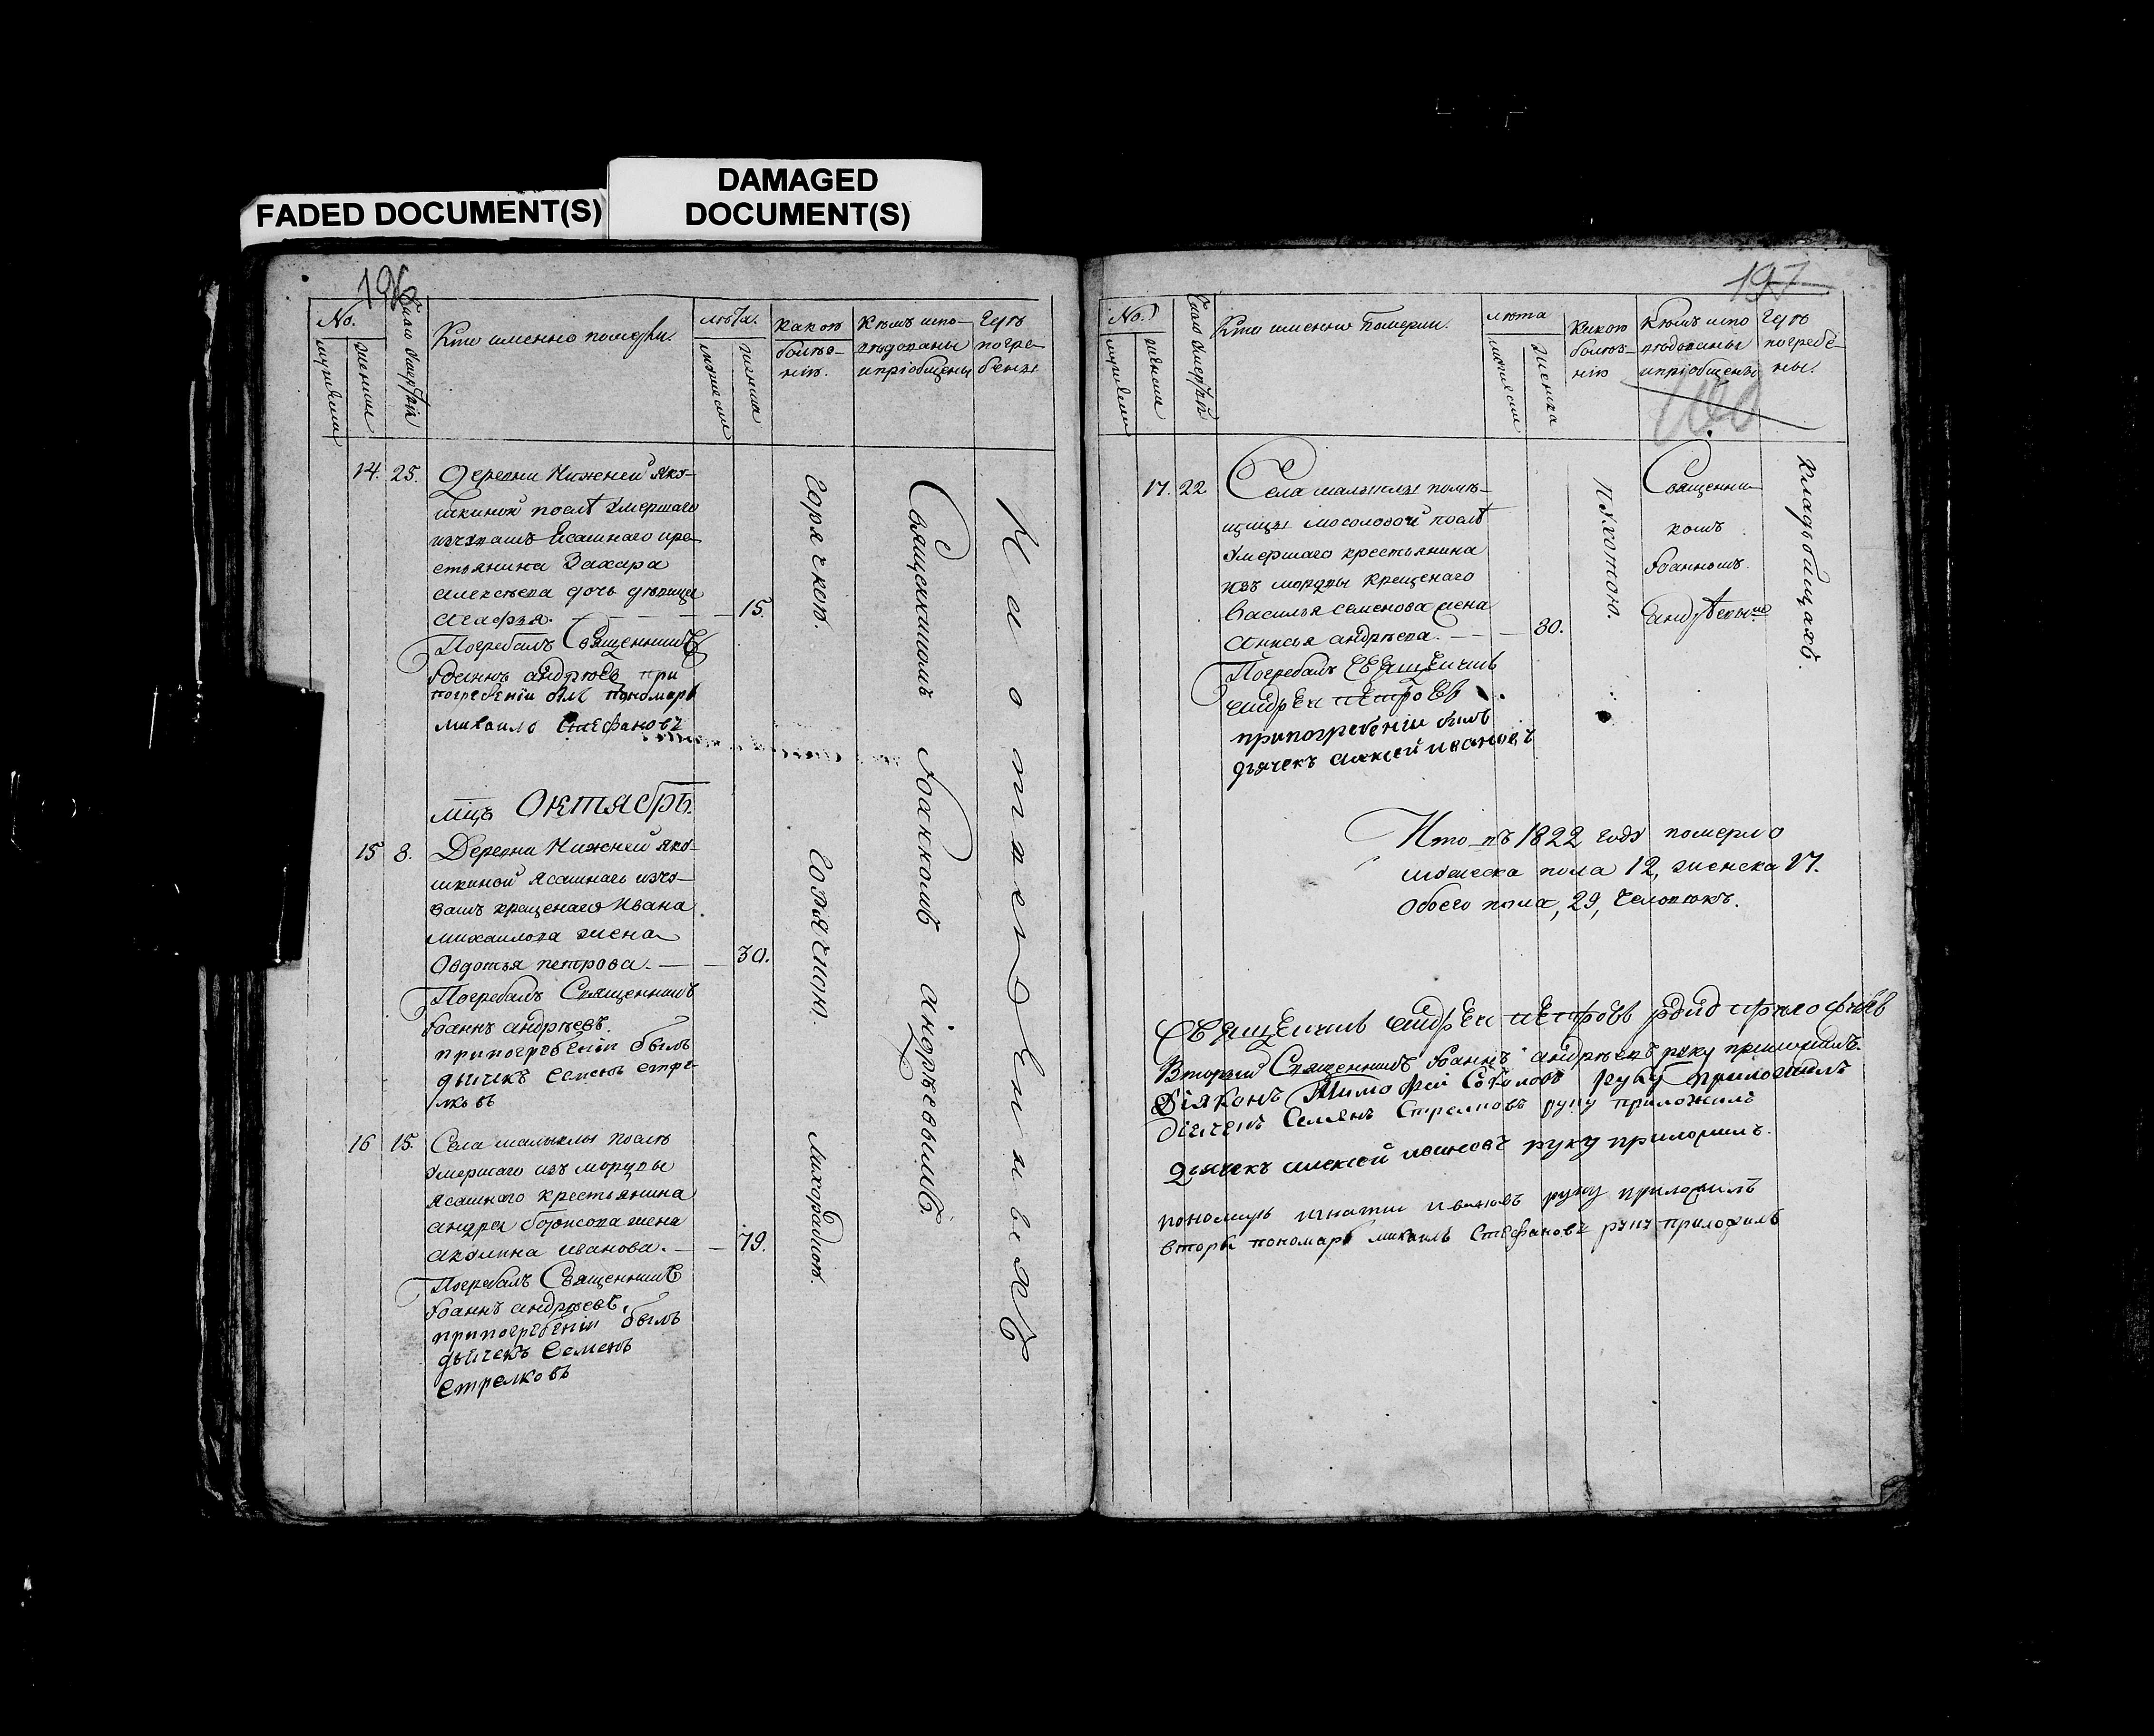 FADED DOCUMENT(S)
DAMAGED
DOCUMENT(S)
196
No.
мужеска
женска
Число Смертей
Кто именно померли.
лѣта.
мужеска
женска
какою
болѣз-
нію.
Кѣмъ испо-
вѣдованы
и пріобщены
Гдѣ
погре-
бены
14. 25. Деревни Нижней Яку-
шкиной послѣ умершаго
изчувашъ Ясашнаго кре-
стьянина Захара
Алексѣева дочь дѣвица
Агафья. — 15.
Погребалъ Священникъ
Іоаннъ андрѣевъ при
погребеніи былъ пономарь
михаило Стефановъ
Горячкою.
мцъ Октябрь.
15 8. Деревни Нижней Яку-
шкиной Ясашнаго изчу-
вашъ крещенаго Ивана
михаилова жена
Овдотья петрова. — 30.
Погребалъ Священникъ
Іоаннъ андрѣевъ.
припогребеніи былъ
дьячекъ Семенъ стре-
лковъ
Горячкою.
16 15. Села малыклы послѣ
умершаго изъ мордвы
Ясашнаго крестьянина
андрея борисова жена
акулина иванова. — 79.
Погребалъ Священникъ
Іоаннъ андрѣевъ,
припогребеніи былъ
дьячекъ Семенъ
Стрелковъ
лихорадкою.
Священникомъ Іоанномъ андрѣевымъ.
На отведенныхъ
197
No.
мужеска
женска
Число Смертей
Кто именно Померли.
лѣта
мужеска
женска
Какою
болѣз-
нію
Кѣмъ испо
вѣдованы
и пріобщены
Гдѣ
погребе-
ны.
17. 22 Села малыклы помѣ-
щицы мосоловой послѣ
умершаго крестьянина
изъ мордвы крещенаго
Василья семенова жена
Анисья андрѣева. — 30.
Погребалъ Священникъ
андрей петровъ
припогребеніи былъ
дьячекъ алексей ивановъ
Чихоткою.
Священни-
комъ
Іоанномъ
Кладьбищахъ.
Итого въ 1822 году померло
мужеска пола 12, женска 17.
Обоего пола, 29, Человѣкъ.
Священникъ андрей петровъ
Вторый Священникъ Іоаннъ андрѣевъ руку приложилъ.
Діяконъ Тимофей руку приложилъ
дьячекъ Семенъ Стрелковъ руку приложилъ
Дьячекъ алексей ивановъ руку приложилъ.
пономарь игнатій ивановъ руку приложилъ
вторы пономарь михаилъ Стефановъ руку приложилъ